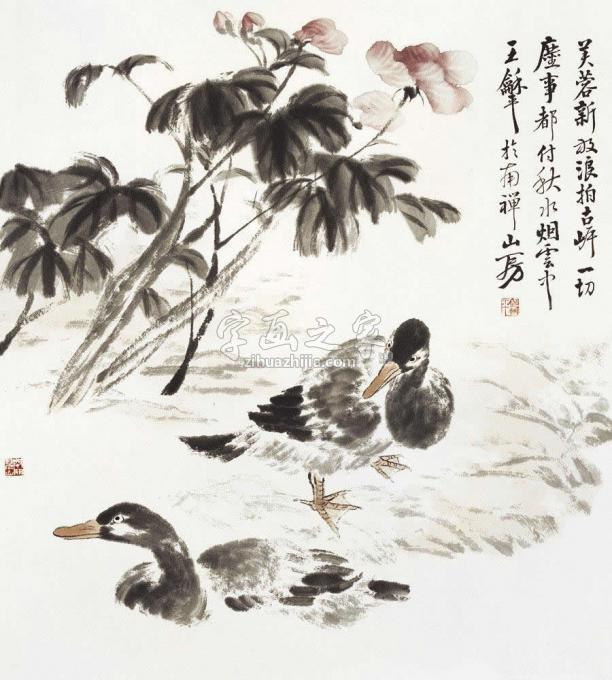 芙蓉新放浪拍古岸一切
塵事都付秋水烟雲中
王龢於南禅山房
字画之家
zihuazhijia.com